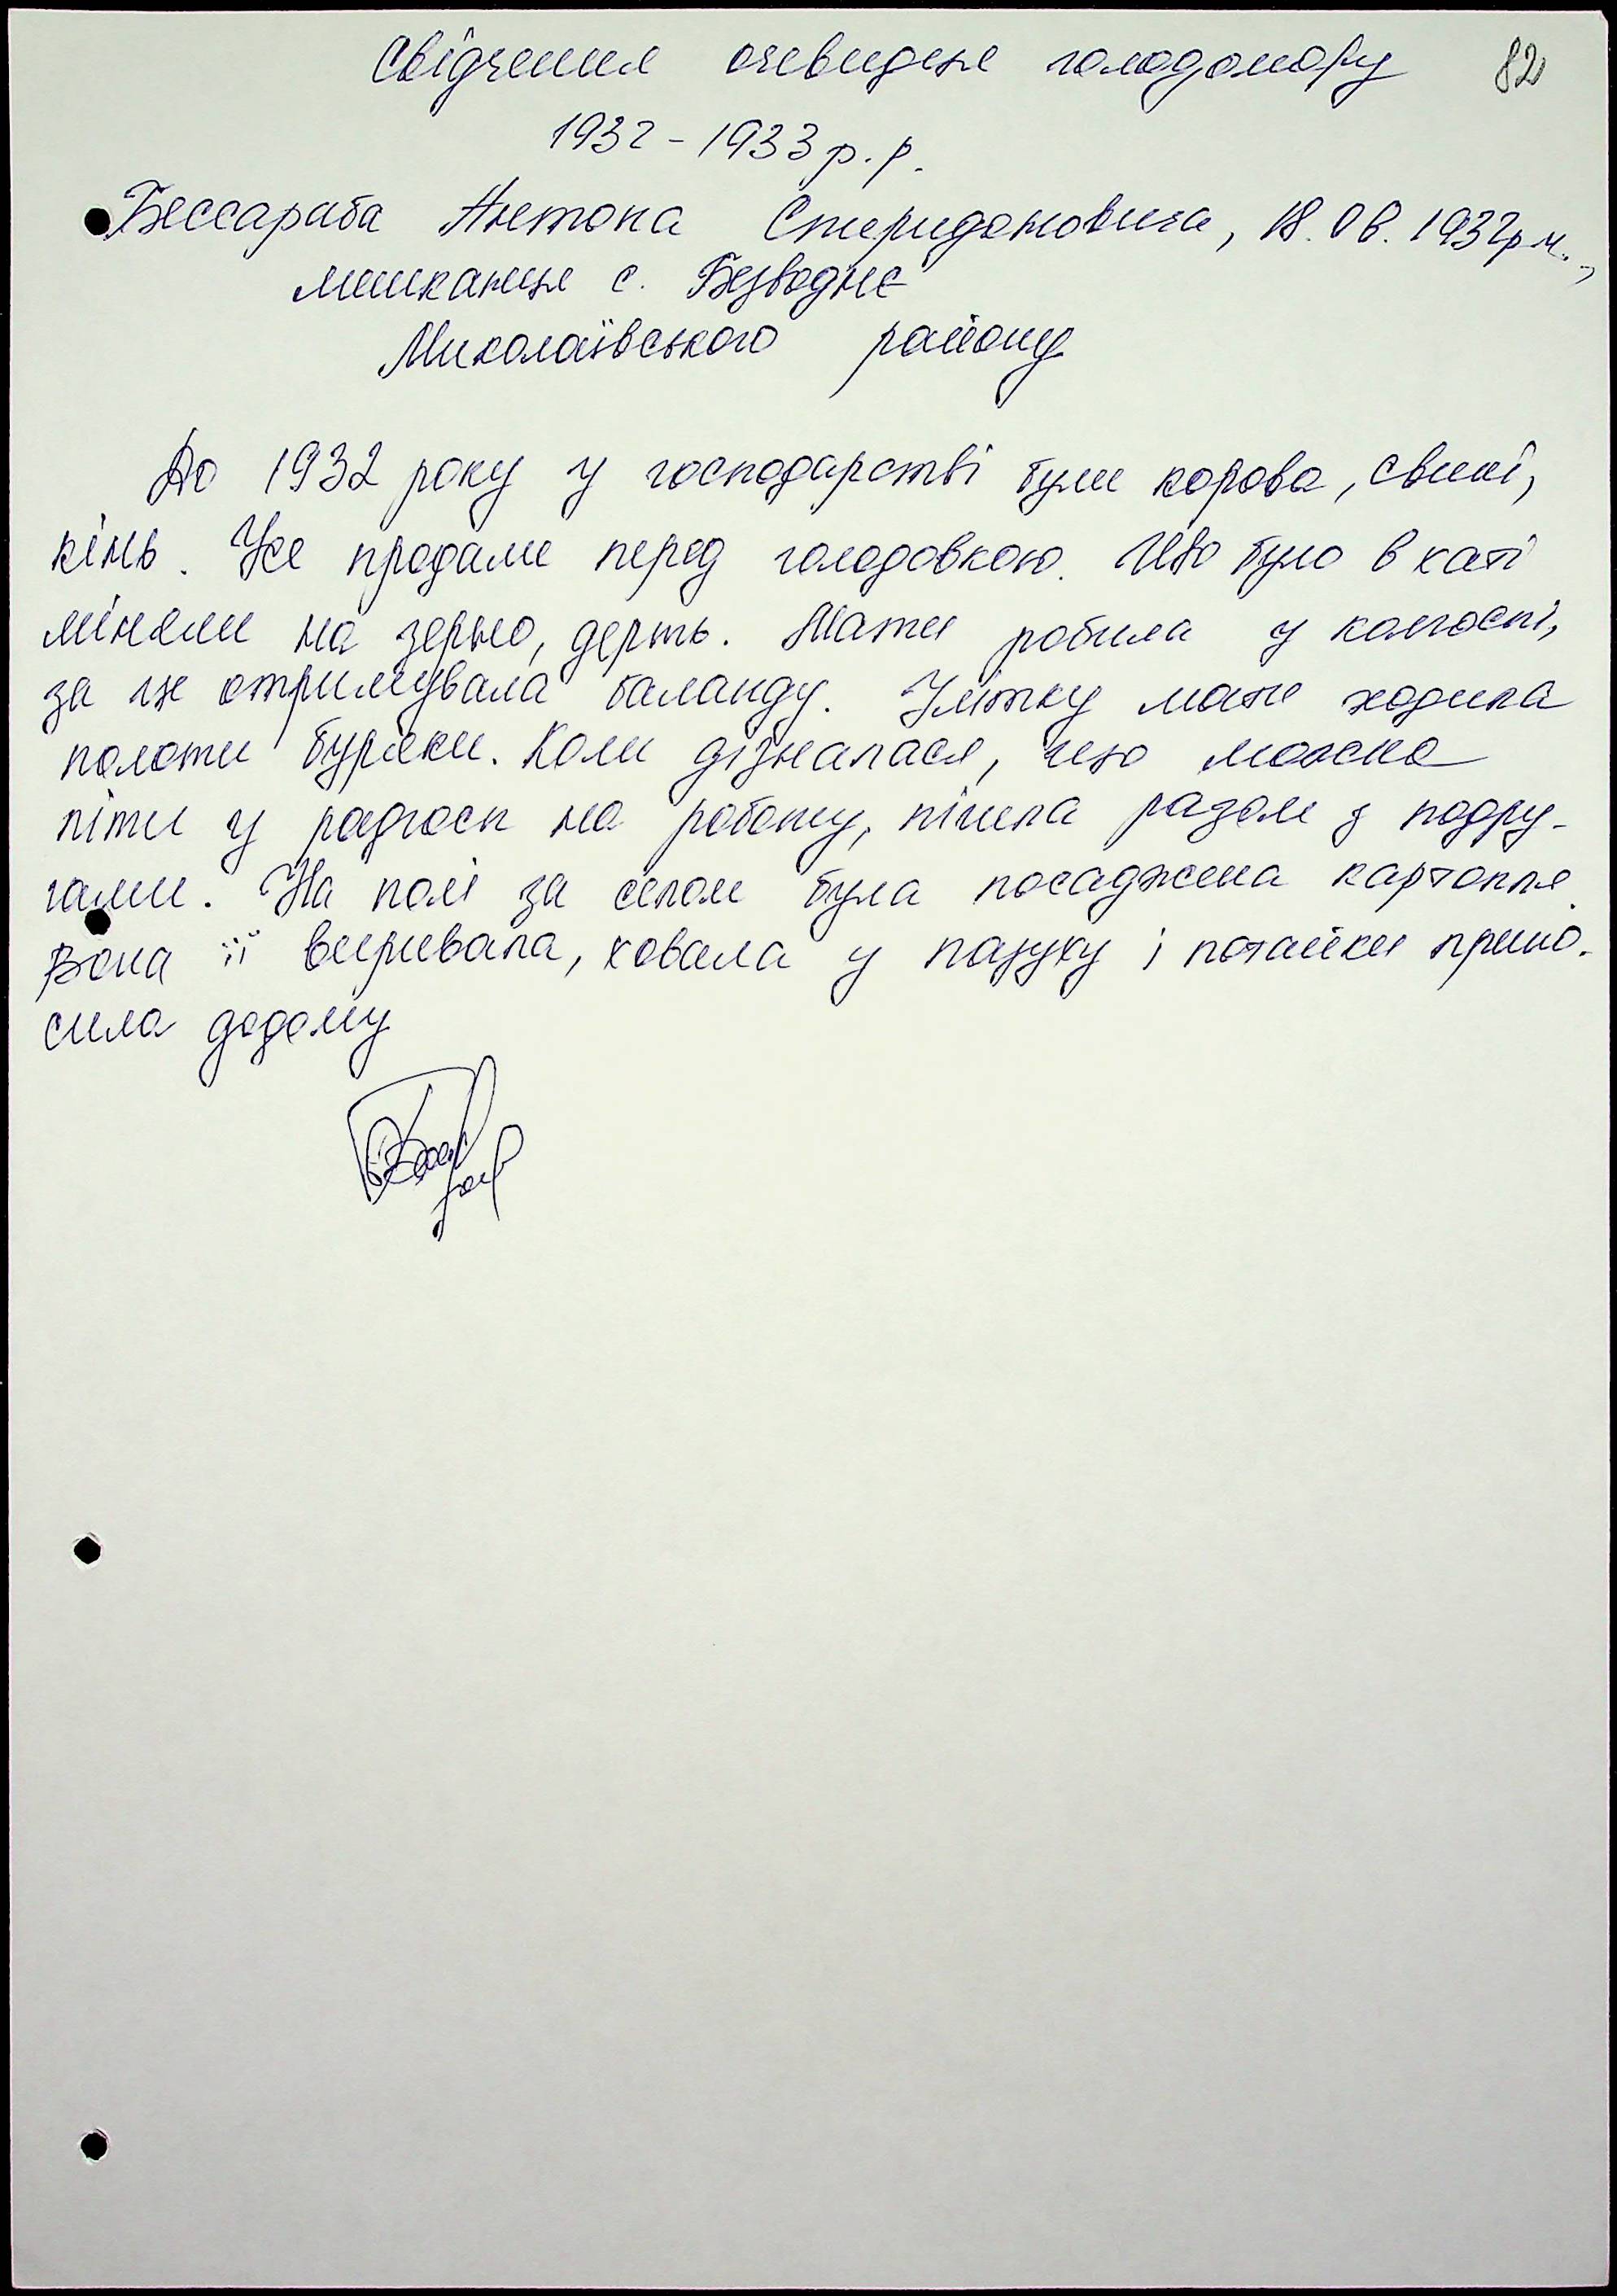 Свідчення очевидця голодомору 82
1932-1933 р.р.
Бессараба Антона Спиридоновича, 18.08.1932р.н.,
мешканця с. Безводне
Миколаївського району
До 1932 року у господарстві були корова, свині,
кінь. Усе продали перед голодовкою. Що було в хаті
міняли на зерно, дерть. Мати робила у колгоспі,
за це отримувала баланду. Улітку мати ходила
полоти буряки. Коли дізналася, що можна
піти у радгосп на роботу, пішла разом з подру-
гами. На полі за селом була посаджена картопля.
Вона її виривала, ховала у пазуху і потайки прино-
сила додому